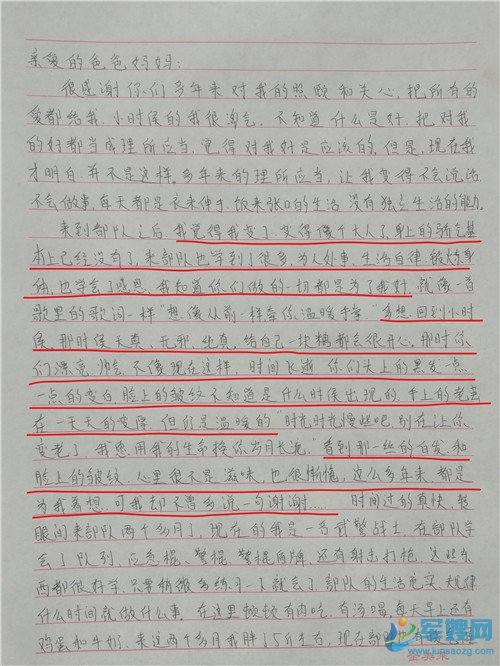 亲爱的爸爸妈妈:
很感谢你们多年来对我的照顾和关心,把所有的
爱都给我.小时候的我很淘气,不知道什么是好.把对我
的好都当成理所应当,觉得对我好是应该的.但是,现在我
才明白.并不是这样.多年来的理所应当,让我变得不会说话.
不会做事.每天都是衣来伸手.饭来张口的生活.没有独立生活的能力.
来到部队之后.我觉得我变了.变得像个大人了,身上的骄气基
本上已经没有了,来部队也学到了很多,为人处事,生活自律.锻炼身
体,也学会了感恩.我知道你们做的一切都是为了我好.就像一首
歌里的歌词一样"想像从前一样牵你温暖手掌"多想回到小时
候,那时候天真、无邪、纯真.给自己一块糖都会很开心.那时你
们漂亮.帅气.不像现在这样,时间飞逝.你们头上的黑发一点
一点的变白.脸上的皱纹不知道是什么时候出现的.手上的老茧
在一天天的变厚.但们是温暖的"时光时光慢些吧.别在让你
变老了.我愿用我的生命换你岁月长流."看到那一丝的白发.和
脸上的皱纹.心里很不是滋味.也很惭愧,这么多年来.都是
为我着想.可我却不曾多说一句谢谢......时间过的真快,转
眼间来部队两个多月了,现在的我是一名武警战士.在部队学
会了队列,应急棍、警棍、警棍盾牌.还有射击打枪.这些东
西都很好学.只要稍微多练习一下就会了.部队的生活充实.规律
什么时间就做什么事.在这里顿顿有肉吃.有汤喝.每天早上还有
鸡蛋和牛奶.来这两个多月我胖15斤左右.现在部
军嫂网
www.junsaozg.com